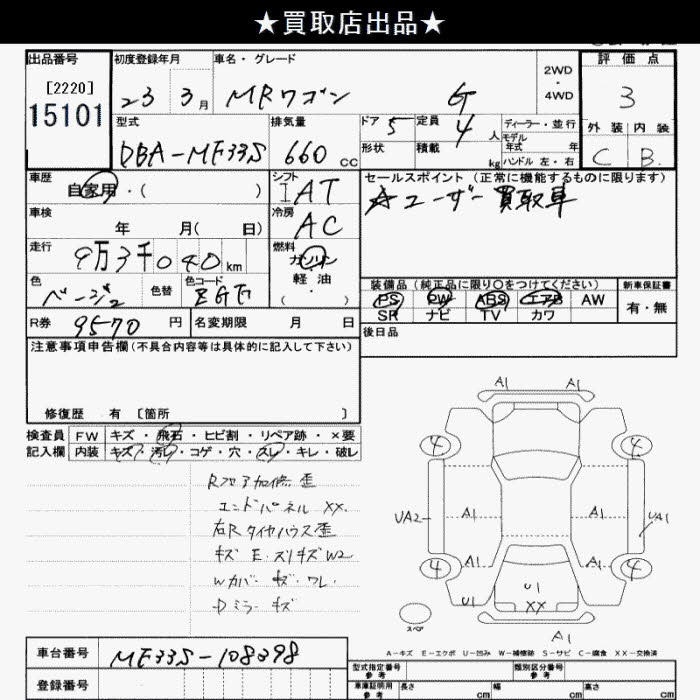 ★買取店出品★
出品番号 初度登録年月 車名・グレード 評価点
[2220]
15101
23 3月 MRワゴン G
2WD
・
4WD
3
型式 排気量 ドア 5 定員 4人 ディーラー・並行
モデル
年式 年
外装 内装
DBA-MF33S 660cc 形状 積載 kg ハンドル 左・右
C B
車歴 シフト セールスポイント (正常に機能するものに限ります)
自家用・( ) IAT ☆ユーザー買取車
車検 冷房
年 月( 日) AC
走行 燃料
9万3千040km ガソリン
軽油
・( )
色 色替 色コード
ベージュ2
装備品 (純正品に限り○をつけてください) 新車保証書
PS PW ABS エアB AW 有・無
SR ナビ TV カワ
R券 9570円 名変期限 月 日 後日品
注意事項申告欄 (不具合内容等は具体的に記入して下さい)
修復歴 有 [箇所 ]
検査員 FW キズ・飛石・ヒビ割・リペア跡・×要
記入欄 内装 キズ・汚レ・コゲ・穴・スレ・キレ・破レ
Rフロア加修 歪
エンドパネル XX.
右Rタイヤハウス歪
キズ E. スリキズ W2
Wカバー キズ・ワレ.
Dミラー キズ
A1 A1
4 4
UA2 A1 A1 UA1
A1 A1
4 4
U1 U1
XX
A1
スペア
A-キズ E-エクボ U-凹み W-補修跡 S-サビ C-腐食 XX-交換済
車台番号 MF33S-108398
型式指定番号 参考 類別区分番号 参考
登録番号
車庫証明用 参考 長さ cm 幅 cm 高さ cm